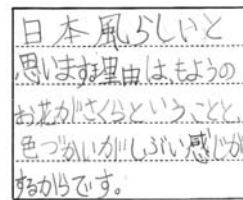 日本風らしいと
思います。理由は、もようの
お花がさくらということと、
色づかいがしぶい感じが
するからです。